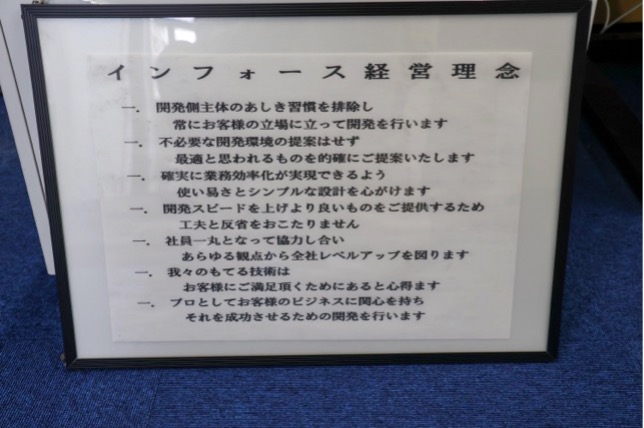 インフォース経営理念
一. 開発側主体のあしき習慣を排除し
常にお客様の立場に立って開発を行います
一. 不必要な開発環境の提案はせず
最適と思われるものを的確にご提案いたします
一. 確実に業務効率化が実現できるよう
使い易さとシンプルな設計を心がけます
一. 開発スピードを上げより良いものをご提供するため
工夫と反省をおこたりません
一. 社員一丸となって協力し合い
あらゆる観点から全社レベルアップを図ります
一. 我々のもてる技術は
お客様にご満足頂くためにあると心得ます
一. プロとしてお客様のビジネスに関心を持ち
それを成功させるための開発を行います